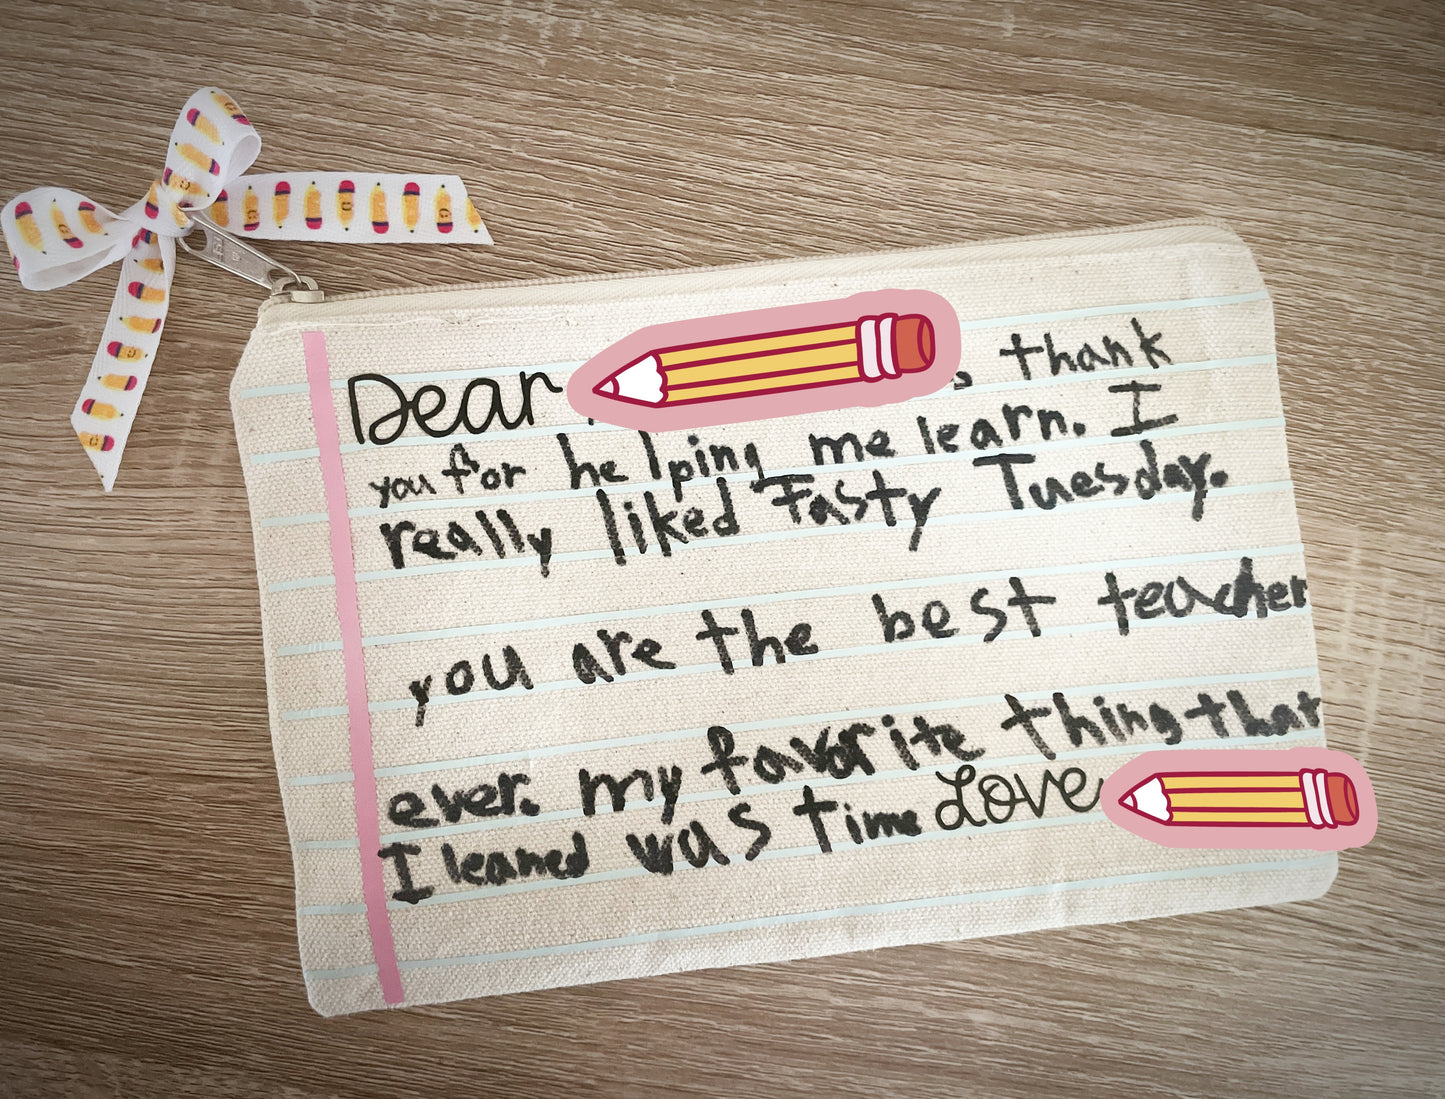 Dear thank
you for helping me learn. I
really liked Tasty Tuesday.
you are the best teacher
ever. my favorite thing that
I learned was time Love